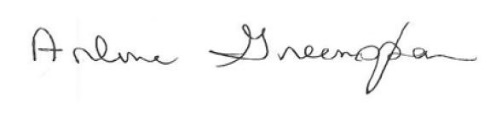 Arlene Greenspan